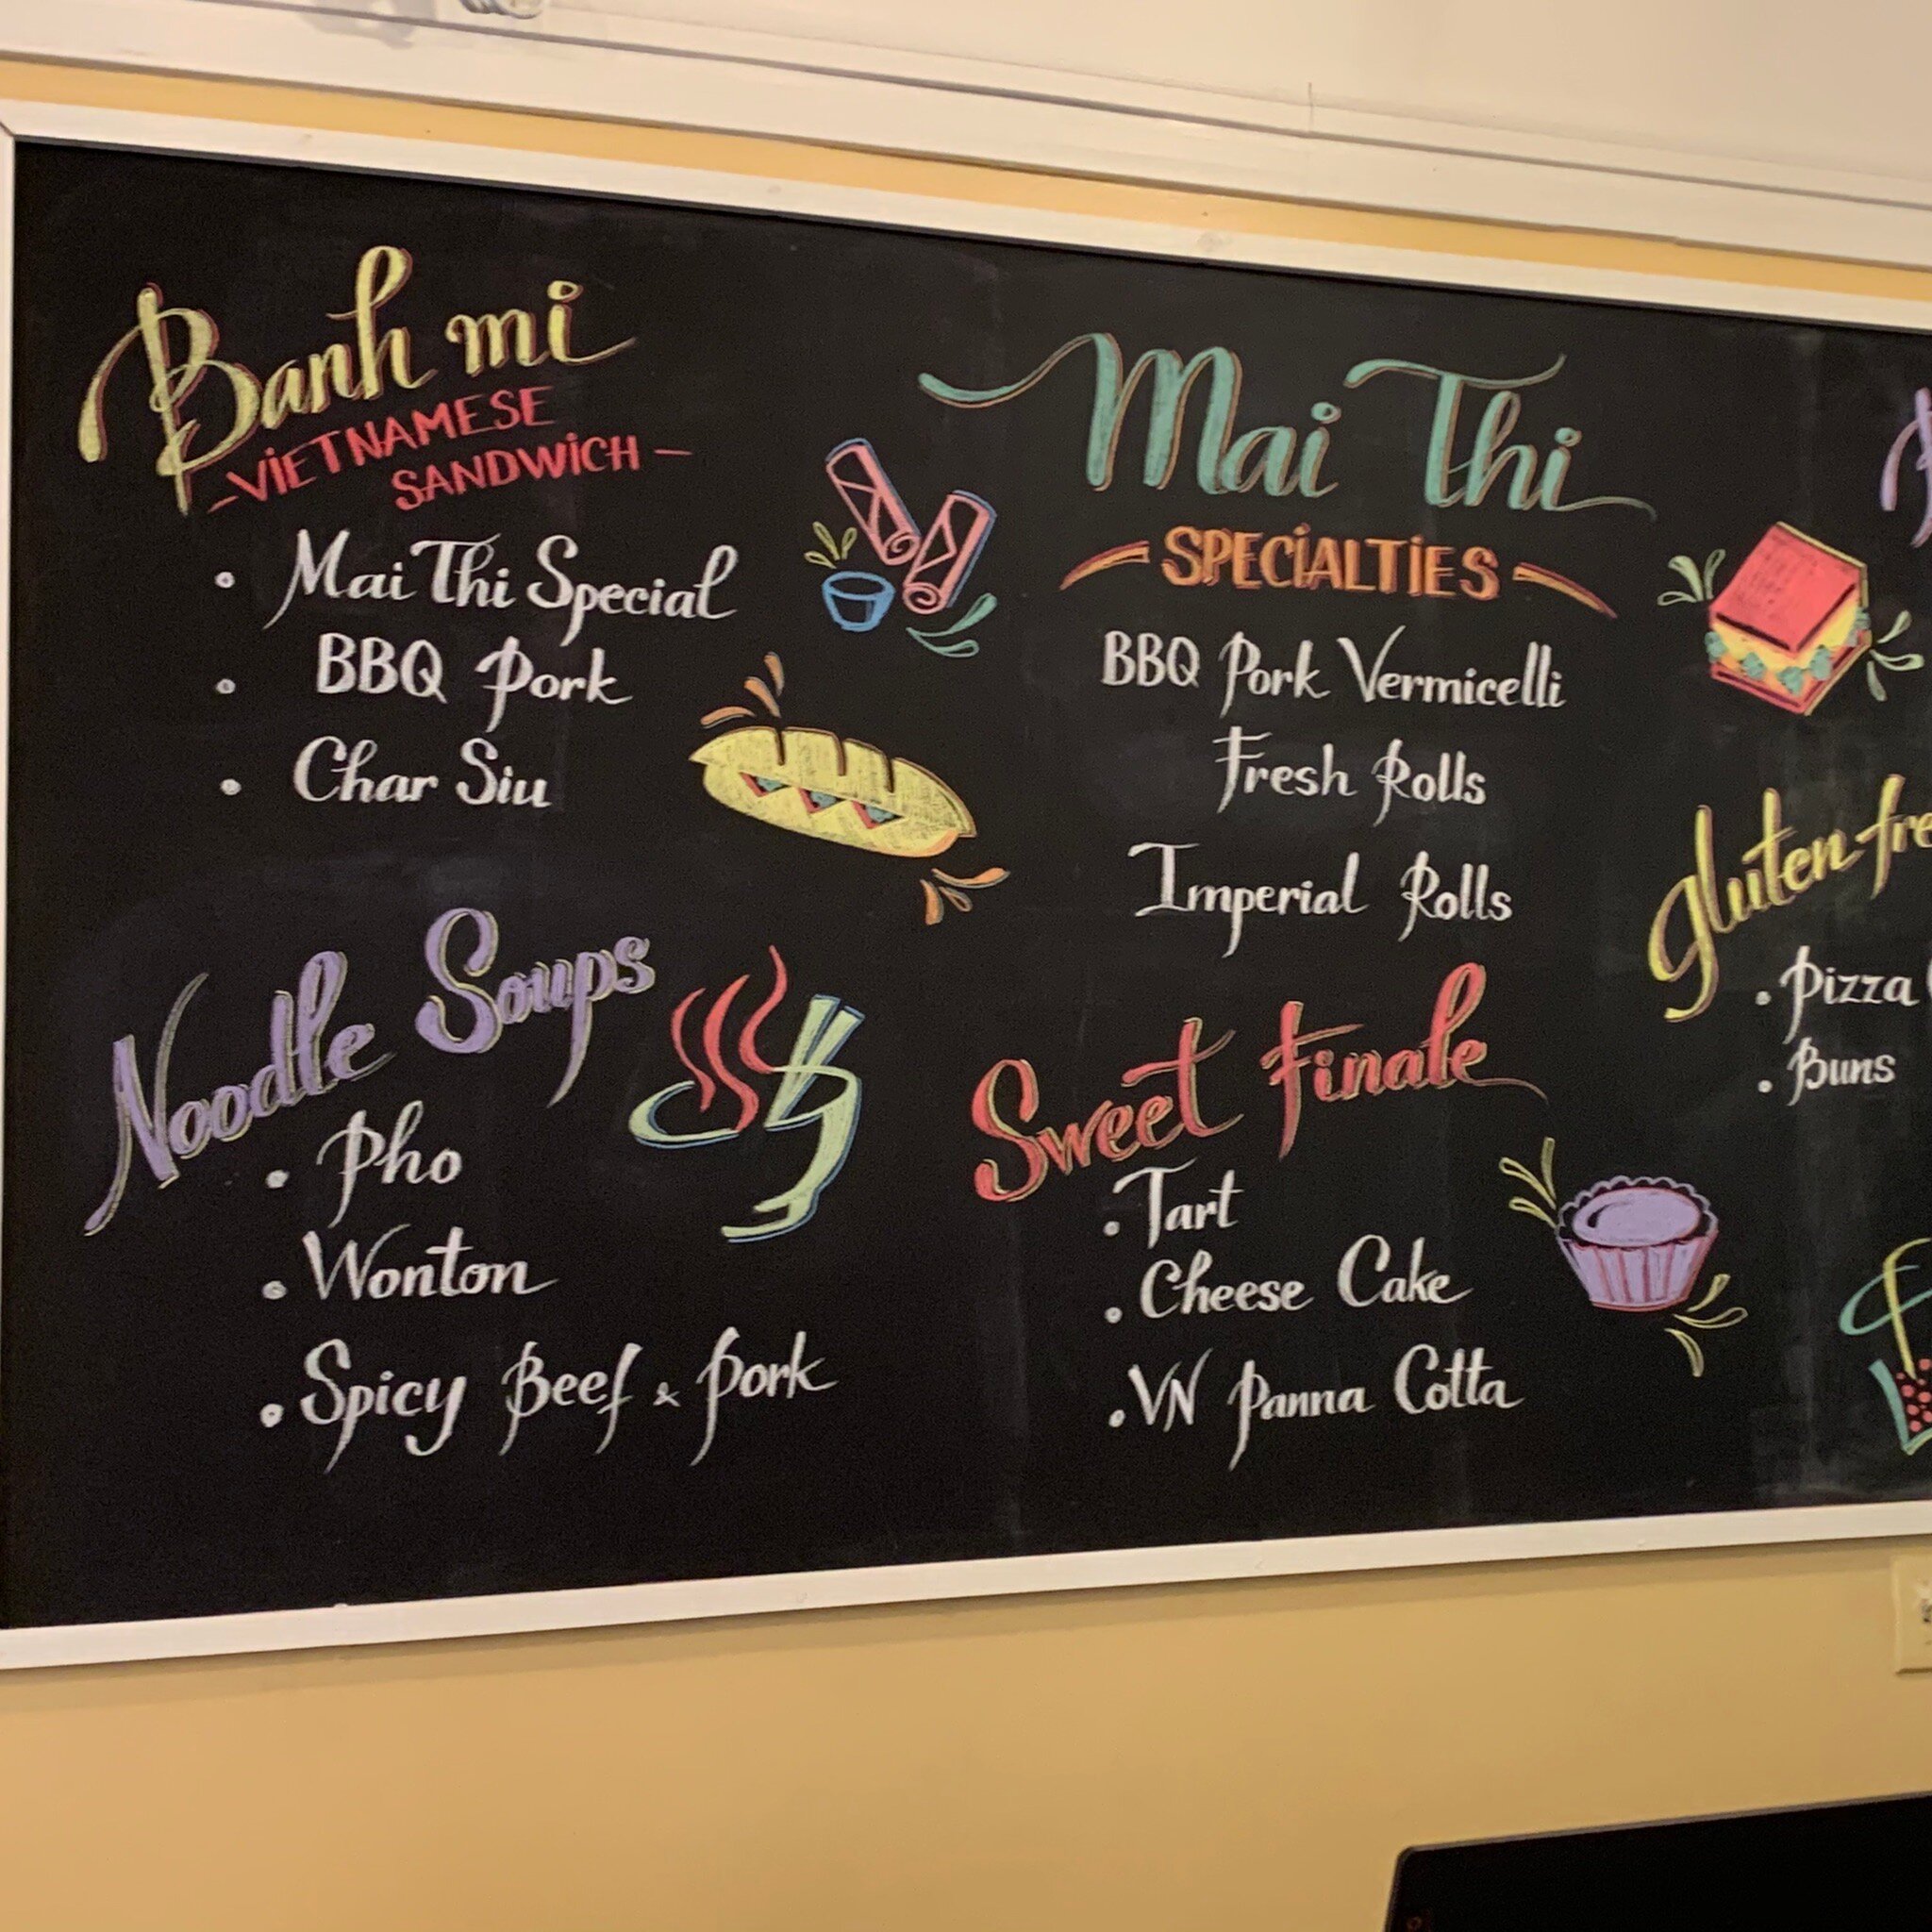 Banh mi
-VIETNAMESE
SANDWICH-
• Mai Thi Special
• BBQ Pork
• Char Siu
Noodle Soups
• Pho
• Wonton
• Spicy Beef & Pork
Mai Thi
SPECIALTIES
BBQ Pork Vermicelli
Fresh Rolls
Imperial Rolls
Sweet Finale
• Tart
• Cheese Cake
• VN Panna Cotta
Gluten-fre
• Pizza
• Buns